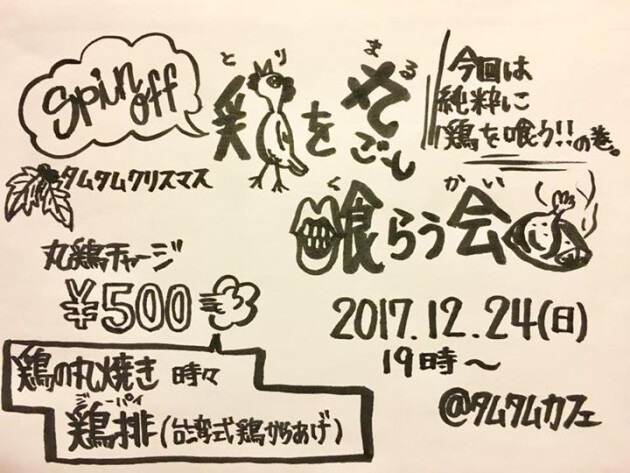 Spin off
鶏を丸ごと
とり まる
喰らう会
く かい
今回は
純粋に
鶏を喰う!!の巻。
タムタムクリスマス
丸鶏チャージ
¥500
2017.12.24(日)
19時〜
@タムタムカフェ
鶏の丸焼き 時々
ジーパイ
鶏排(台湾式鶏からあげ)